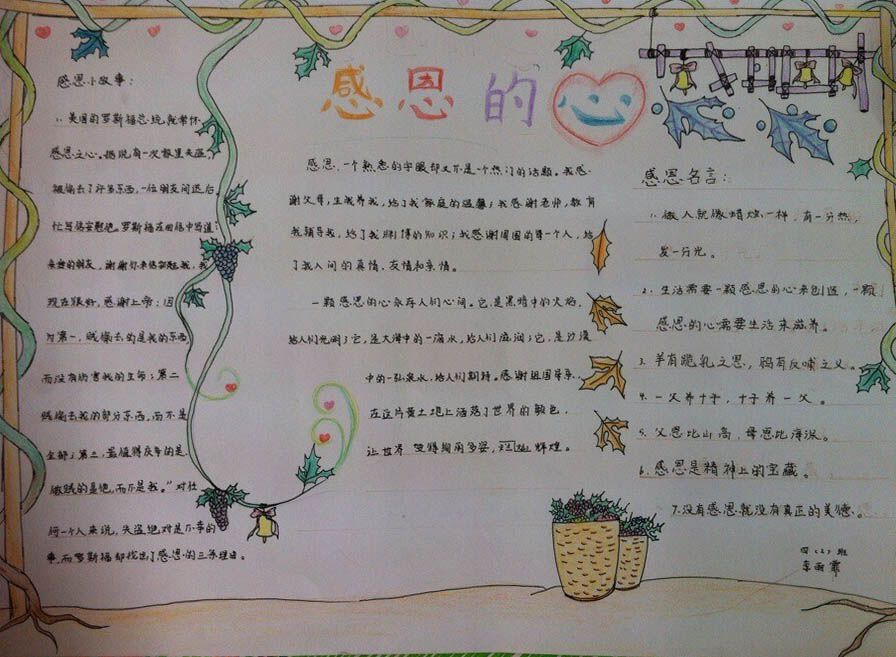 感恩的心
感恩小故事：
1、美国的罗斯福总统就常怀
感恩之心。据说有一次家里失盗，
被偷去了许多东西，一位朋友闻讯后，
忙写信安慰他。罗斯福在回信中写道：
亲爱的朋友，谢谢你来信安慰我，我
现在很好，感谢上帝：因
为第一，贼偷去的是我的东西
而没有伤害我的生命；第二
贼偷去我的部分东西，而不是
全部；第三，最值得庆幸的是
做贼的是他，而不是我。”对任
何一个人来说，失盗绝对是不幸的
事，而罗斯福却找出了感恩的三条理由。
感恩，一个熟悉的字眼却又不是一个热门的话题。我感
谢父母，生我养我，给了我家庭的温馨；我感谢老师，教育
我辅导我，给了我渊博的知识；我感谢周围的每一个人，给
了我人间的真情，友情和亲情。
一颗感恩的心永存人们心间。它是黑暗中的火焰，
给人们光明；它，是大海中的一滴水，给人们滋润；它，是沙漠
中的一弘泉水，给人们期待。感谢祖国母亲，
在这片黄土地上活落了世界的颜色，
让世界变得绚丽多姿，灿烂辉煌。
感恩名言：
1、做人就像蜡烛一样，有一分热，
发一分光。
2、生活需要一颗感恩的心来创造，一颗
感恩的心需要生活来滋养。
3、羊有跪乳之恩，鸦有反哺之义。
4、一父养十子，十子养一父。
5、父恩比山高，母恩比海深。
6、感恩是精神上的宝藏。
7、没有感恩就没有真正的美德。
四（2）班
李雨霏